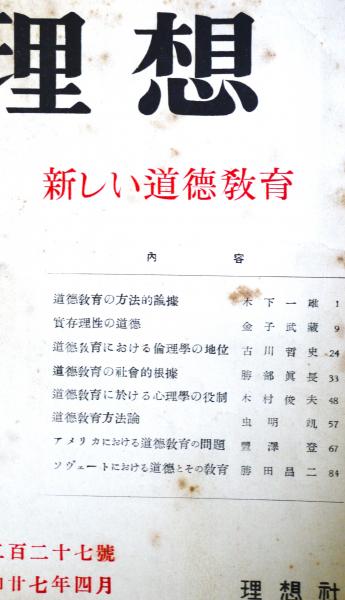 理想
新しい道德敎育
內容
道德敎育の方法的論據 木下一雄 1
實存理性の道德 金子武藏 9
道德敎育における倫理學の地位 古川哲史 24
道德敎育の社會的根據 勝部眞長 33
道德敎育に於ける心理學の役制 木村俊夫 48
道德敎育方法論 虫明 57
アメリカにおける道德敎育の問題 豐澤登 67
ソヴェートにおける道德とその敎育 勝田昌二 84
百二十七號
廿七年四月
理想社